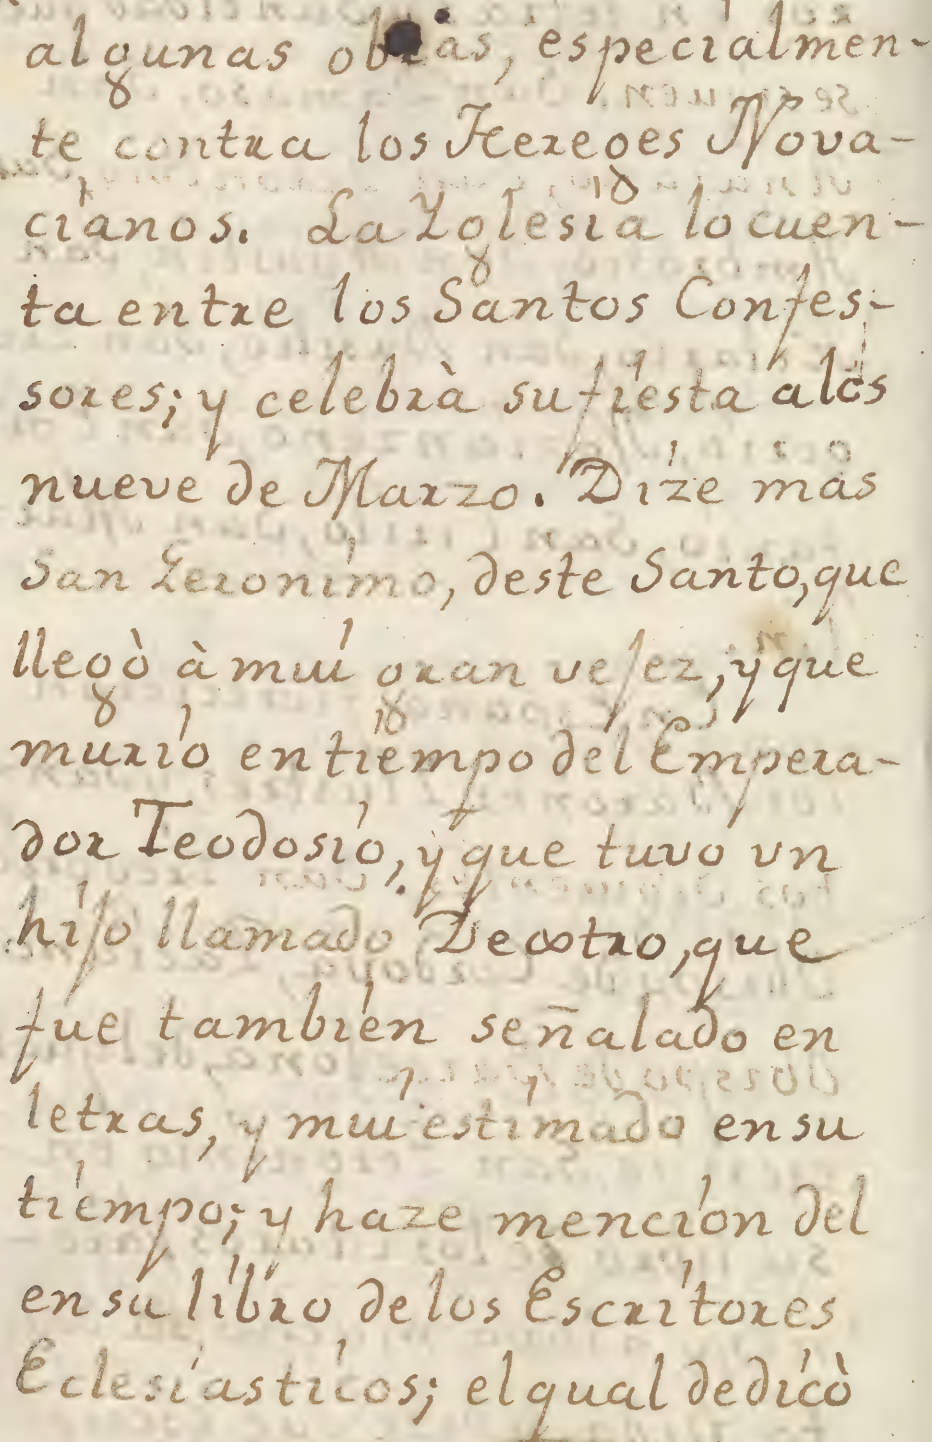 algunas obras, especialmen-
te contra los Hereges Nova-
cianos. La Iglesia lo cuen-
ta entre los Santos Confes-
sores; y celebrà su fiesta alos
nueve de Marzo. Dize mas
San Ieronimo, deste Santo, que
llegò à mui gran vejez, y que
murio en tiempo del Empera-
dor Teodosio, y que tuvo vn
hijo llamado Dextro, que
fue tambien señalado en
letras, y mui estimado en su
tiempo; y haze mencion del
en su libro de los Escritores
Eclesiasticos; el qual dedicò